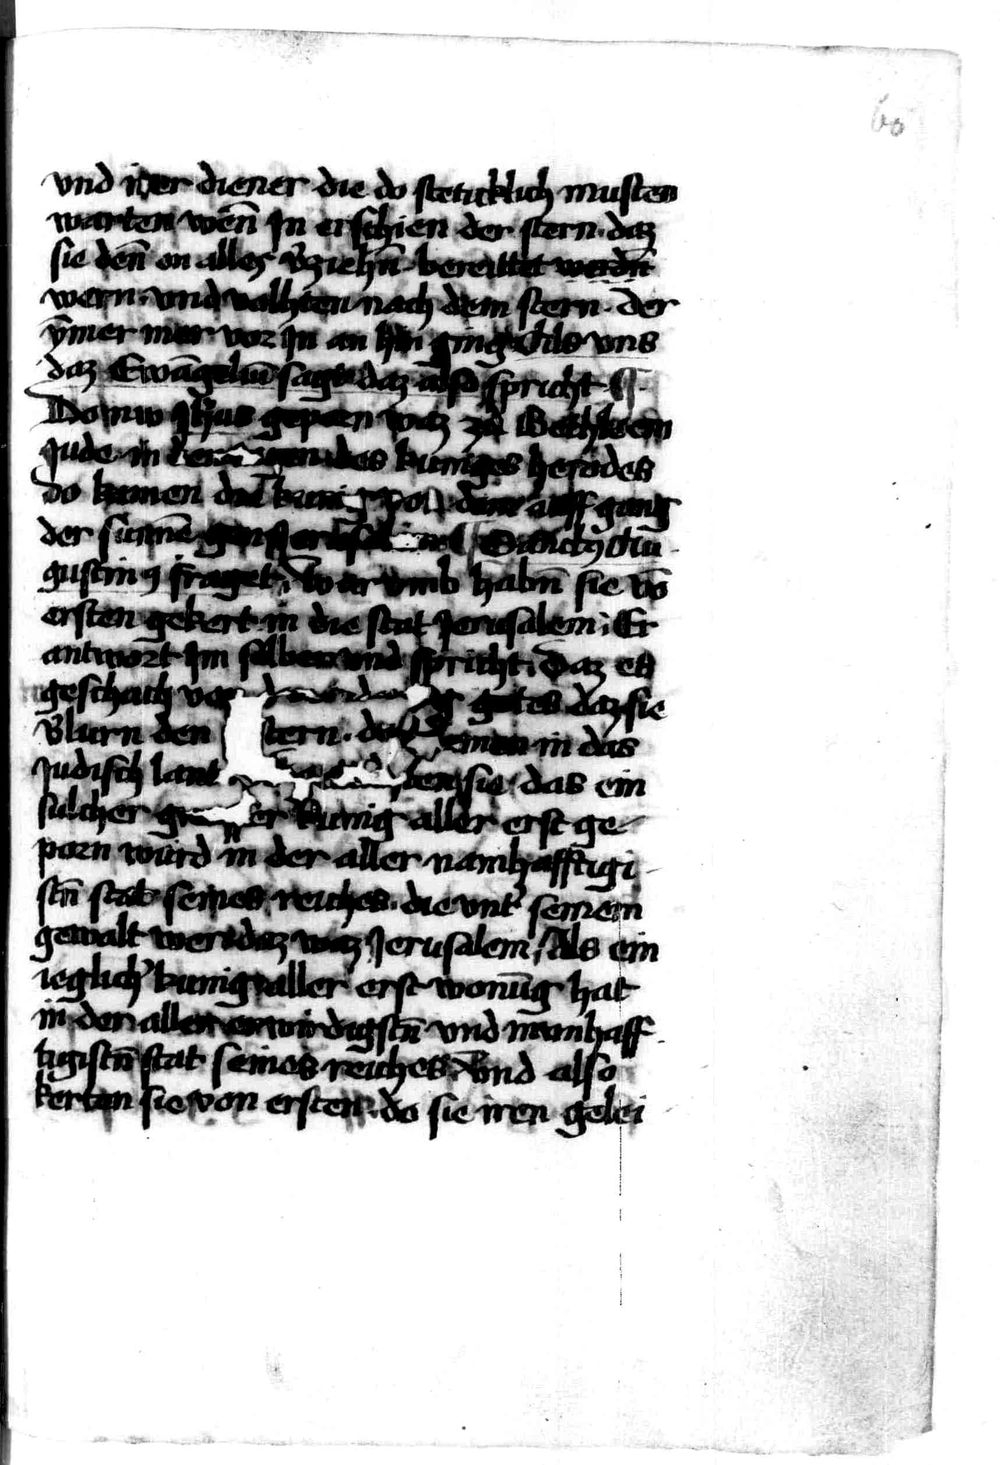 60
vnd irer diener die do steticklich musten
warten wen̄ In erschien der stern. daz
sie den̄ on alles v̓ziehn̄ bereittet werdn̄
wern. vnd volhten nach dem stern. der
ӯmer mer vor In an hin ging Als vns
daz Ewāgeliū sagt daz also spricht ¶
Do nw Jh̄us geporn waz zu Bethleem
Jude in den tagen des kuniges herodes
do kamen die kunig von dem auff gang
der sunnē gen Jerusalem ¶ Sanctus Au
gustinꝯ fraget. war vmb habn̄ sie vō
ersten gekert in die stat Jerusalem. Er
antwort Im selber vnd spricht. Daz es
geschach von gotes daz sie
v̓lurn den stern. do in das
Judisch lant sie das ein
sulcher kunig aller erst ge
porn würd in der aller namhafftigi
stn̄ stat seines reiches. die vnt̓ seinem
gewalt wer. daz waz Jerusalem. Als ein
ieglich̓ kunig aller erst wonūg hat
in der aller erwirdigstn̄ vnd namhaff
tigistn̄ stat seines reiches. Vnd also
kerten sie von ersten. do sie iren gelei